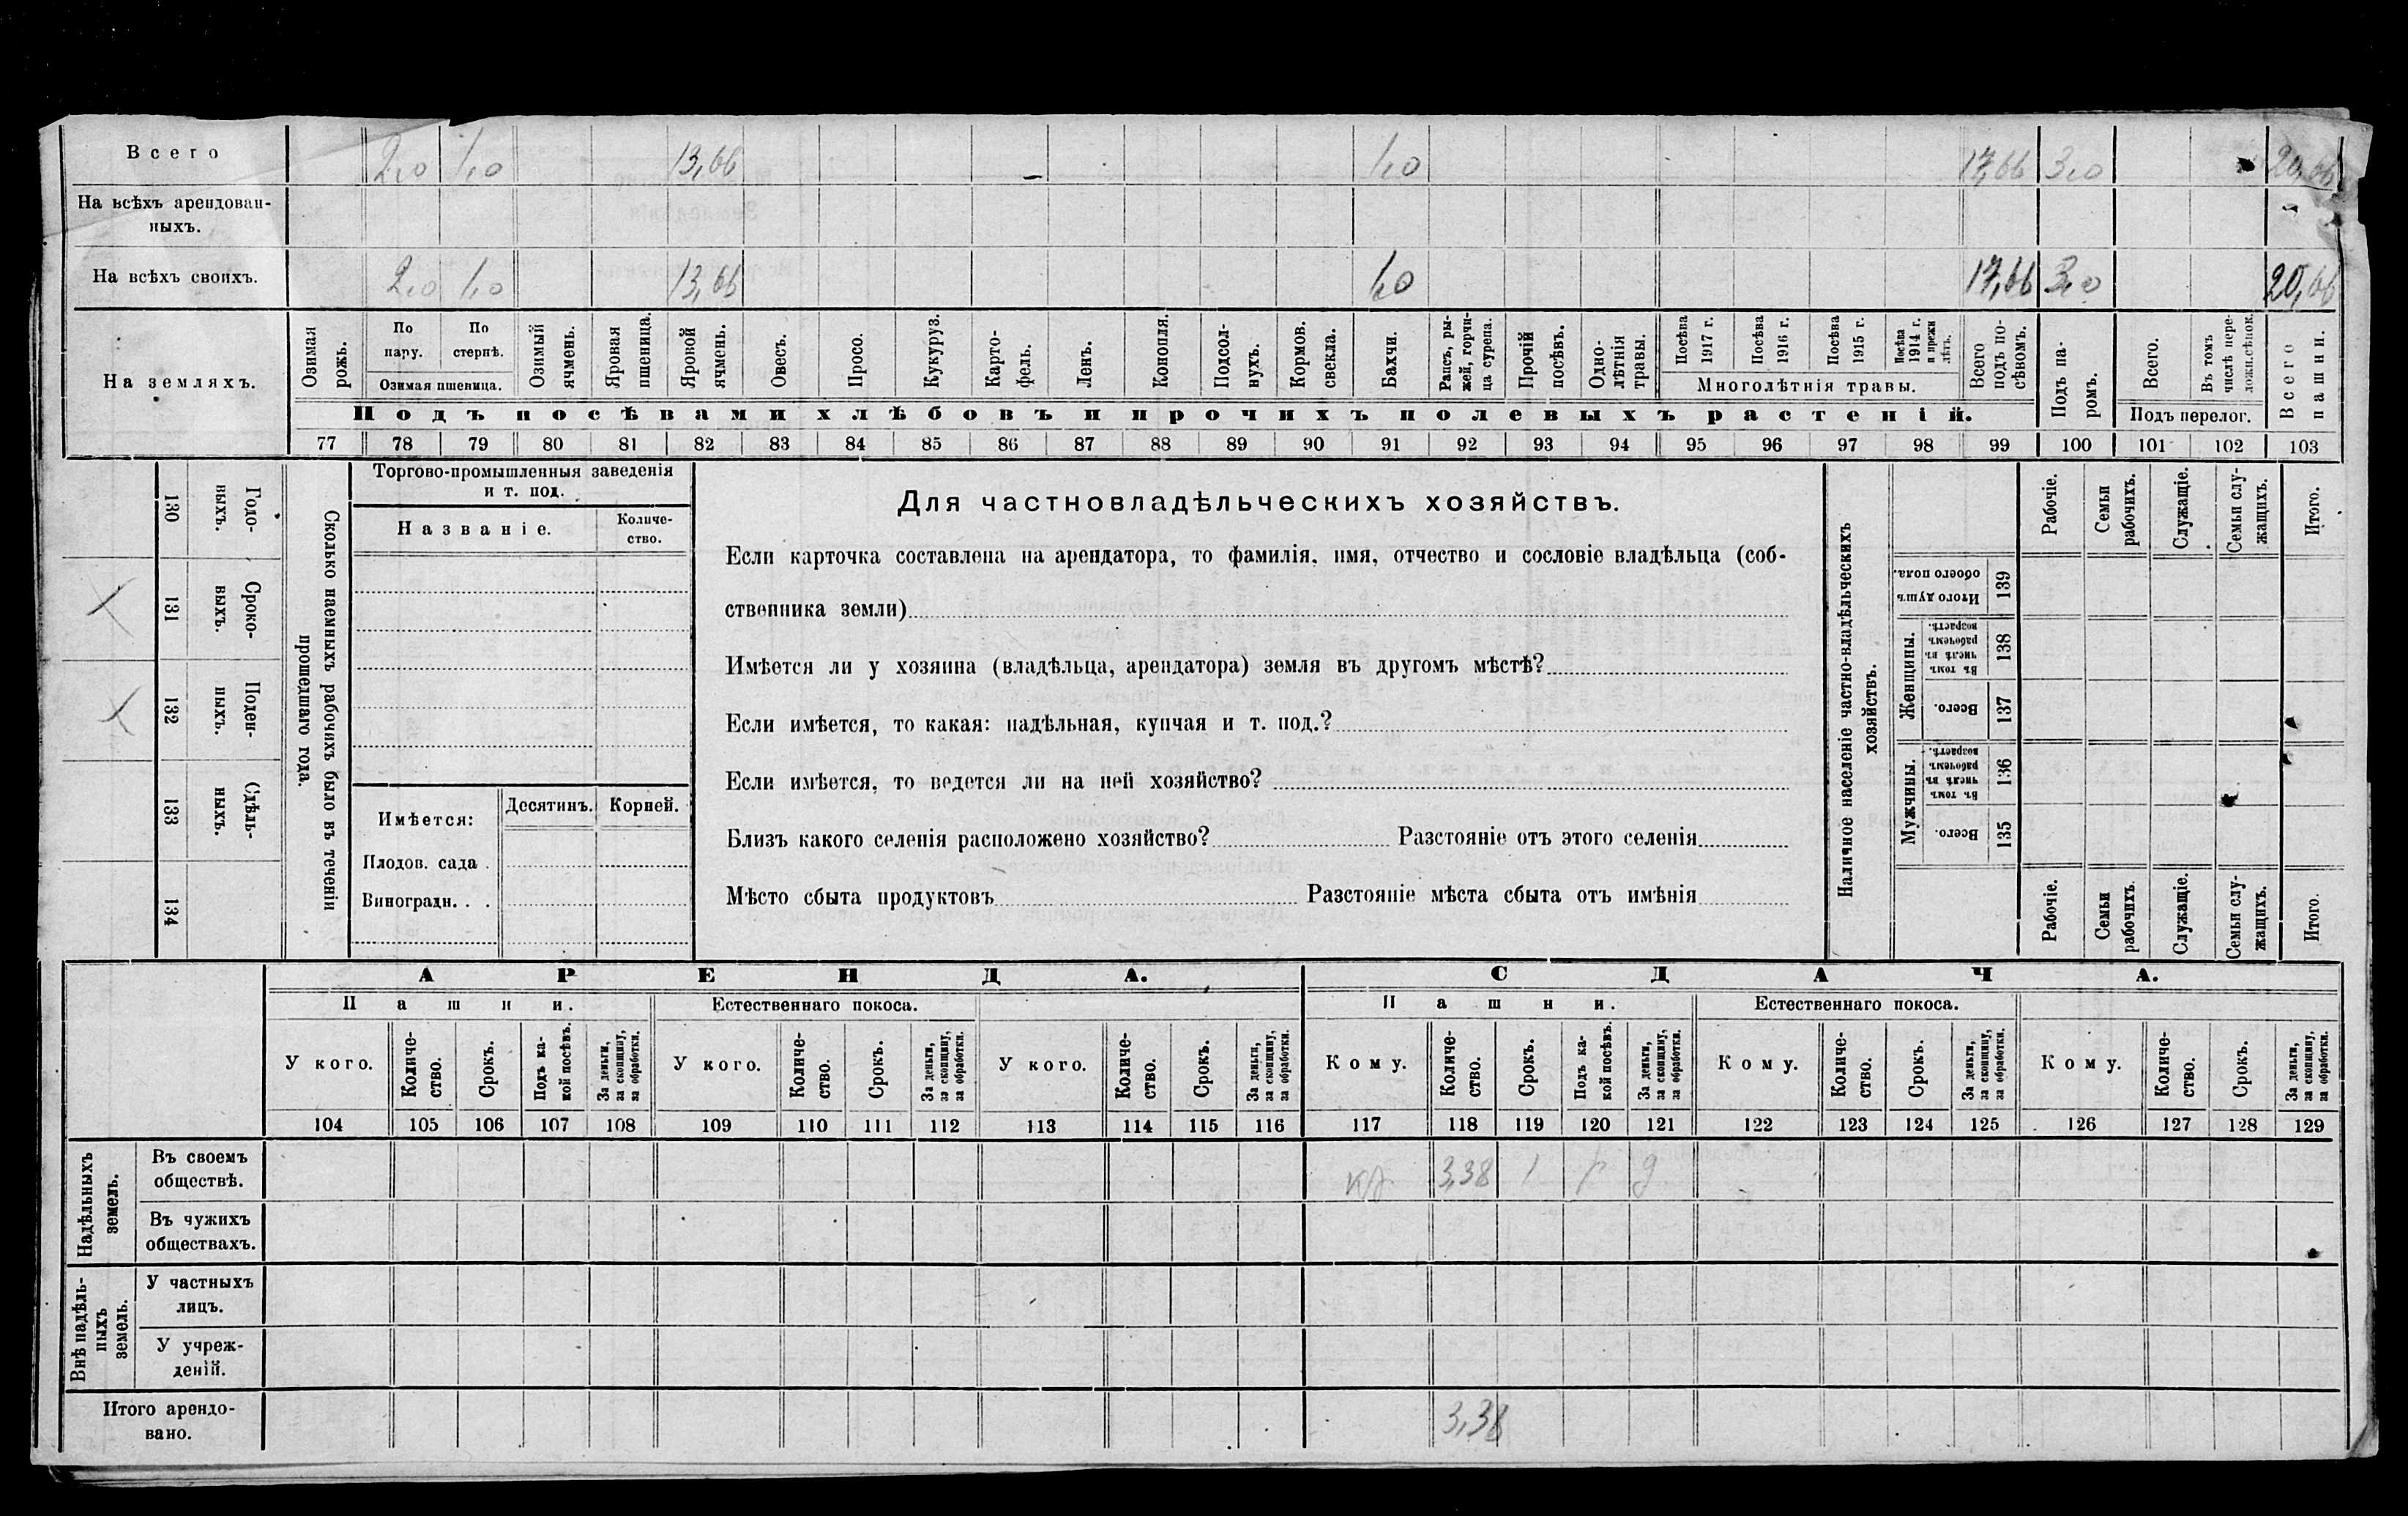 Всего 2,0 1,0 13,66 1,0 17,66 3,0 20,66
На всѣхъ арендован-
ныхъ.
На всѣхъ своихъ. 2,0 1,0 13,66 1,0 17,66 3,0 20,66
На земляхъ.
Озимая рожь.
По пару.
По стернѣ.
Озимая пшеница.
Озимый ячмень.
Яровая пшеница.
Яровой ячмень.
Овесъ.
Просо.
Кукуруз.
Карто-
фель.
Ленъ.
Конопля.
Подсол-
нухъ.
Кормов. свекла.
Бахчи.
Рапсъ, ры-
жей, горчи-
ца сурепа.
Прочій посѣвъ.
Одно-
лѣтнія травы.
Посѣва 1917 г.
Посѣва 1916 г.
Посѣва 1915 г.
Посѣва 1914 г. и прежн лѣтъ.
Многолѣтнія травы.
Всего подъ по-
сѣвомъ.
Подъ па-
ромъ.
Всего.
Въ томъ числѣ пере-
лож.сѣнок.
Подъ перелог.
Всего пашни.
Подъ посѣвами хлѣбовъ и прочихъ полевыхъ растеній.
77 78 79 80 81 82 83 84 85 86 87 88 89 90 91 92 93 94 95 96 97 98 99 100 101 102 103
130 Годо-
выхъ.
131 Сроко-
выхъ.
132 Поден-
ныхъ.
133 Сдѣль-
ныхъ.
134
Сколько наемныхъ рабочихъ было въ теченіи
прошедшаго года.
Торгово-промышленныя заведенія
и т. под.
Названіе.
Количе-
ство.
Имѣется:
Десятинъ. Корней.
Плодов. сада .
Виноградн. . .
Для частновладѣльческихъ хозяйствъ.
Если карточка составлена на арендатора, то фамилія, имя, отчество и сословіе владѣльца (соб-
ственника земли)
Имѣется ли у хозяина (владѣльца, арендатора) земля въ другомъ мѣстѣ?
Если имѣется, то какая: надѣльная, купчая и т. под.?
Если имѣется, то ведется ли на ней хозяйство?
Близъ какого селенія расположено хозяйство? Разстояніе отъ этого селенія
Мѣсто сбыта продуктовъ Разстояніе мѣста сбыта отъ имѣнія
Наличное населеніе частно-владѣльческихъ
хозяйствъ.
Рабочіе.
Семьи рабочихъ.
Служащіе.
Семьи слу-
жащихъ.
Итого.
Итого душъ обоего пола. 139
Женщины.
Въ томъ числѣ въ рабочемъ возрастѣ. 138
Всего. 137
Мужчины.
Въ томъ числѣ въ рабочемъ возрастѣ. 136
Всего. 135
Рабочіе.
Семьи рабочихъ.
Служащіе.
Семьи слу-
жащихъ.
Итого.
АРЕНДА. СДАЧА.
Пашни. Естественнаго покоса. Пашни. Естественнаго покоса.
У кого.
Количе-
ство.
Срокъ.
Подъ ка-
кой посѣвъ.
За деньги, за скопщину, за обработки.
У кого.
Количе-
ство.
Срокъ.
За деньги, за скопщину, за обработки.
У кого.
Количе-
ство.
Срокъ.
За деньги, за скопщину, за обработки.
Кому.
Количе-
ство.
Срокъ.
Подъ ка-
кой посѣвъ.
За деньги, за скопщину, за обработки.
Кому.
Количе-
ство.
Срокъ.
За деньги, за скопщину, за обработки.
Кому.
Количе-
ство.
Срокъ.
За деньги, за скопщину, за обработки.
104 105 106 107 108 109 110 111 112 113 114 115 116 117 118 119 120 121 122 123 124 125 126 127 128 129
Надѣльныхъ земель.
Въ своемъ
обществѣ. 3,38 1
Въ чужихъ
обществахъ.
Внѣ надѣль-
ныхъ земель.
У частныхъ
лицъ.
У учреж-
деній.
Итого арендо-
вано. 3,38